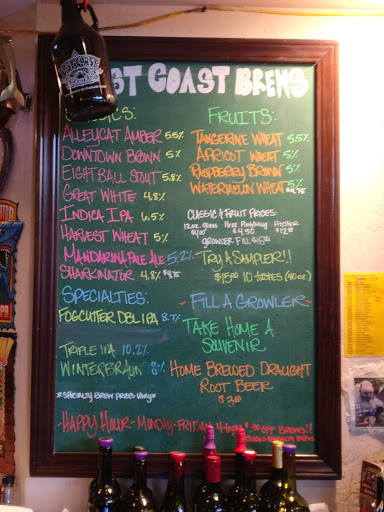 ST COAST BREWS
ICS:
ALLEYCAT AMBER 5.5%
DOWNTOWN BROWN 5%
EIGHT BALL STOUT 5.8%
GREAT WHITE 4.8%
INDICA IPA 6.5%
HARVEST WHEAT 5%
MANDARINA PALE ALE 5.2%
SHARKINATOR 4.8% $4.75
SPECIALTIES:
FOGCUTTER DBL IPA 8.7%
TRIPLE IPA 10.2%
WINTERBRAUN 8%
*SPECIALTY BREW PRICES VARY*
FRUITS:
TANGERINE WHEAT 5.5%
APRICOT WHEAT 5%
RASPBERRY BROWN 5%
WATERMELON WHEAT 5% $4.75
CLASSIC & FRUIT PRICES:
12oz. glass $4.00
$4.50
PITCHER
GROWLER FILL
TRY A SAMPLER!!
$15.00 10 tastes (40oz)
- FILL A GROWLER -
TAKE HOME A
SOUVENIR
HOME BREWED DRAUGHT
ROOT BEER
$3.00
-HAPPY HOUR- MONDAY-FRIDAY 4-6pm OFF BREWS!!